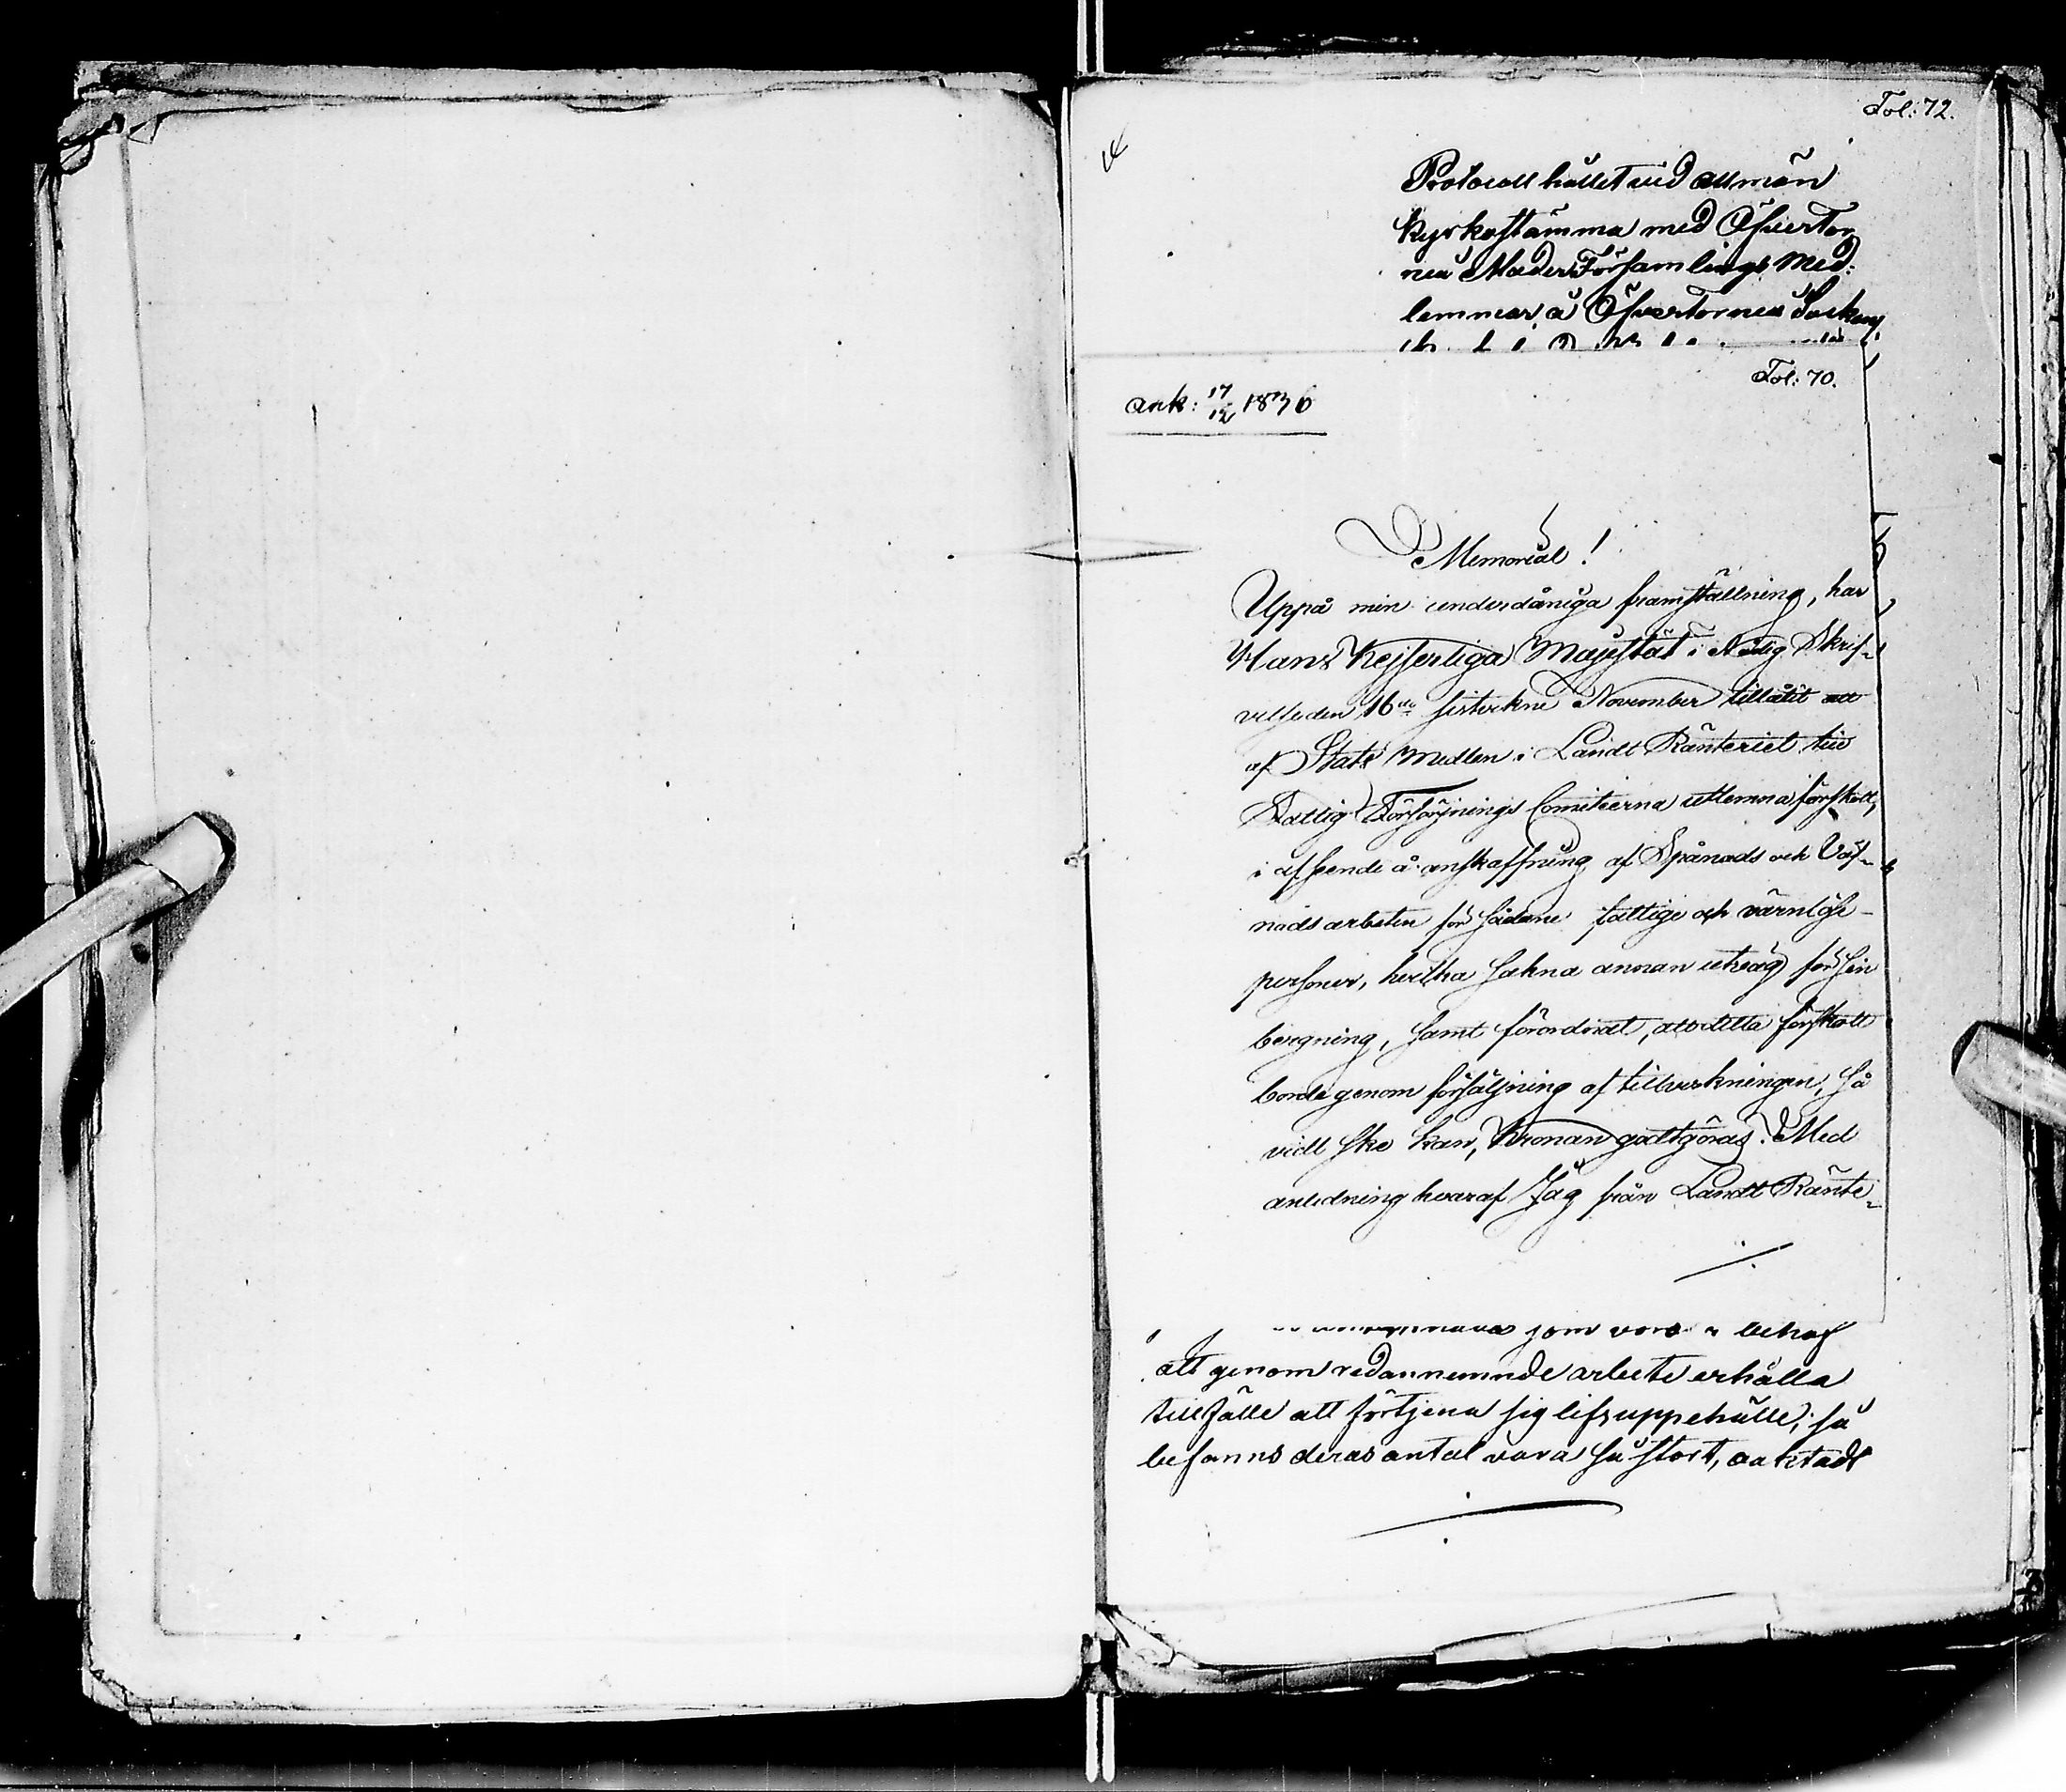 Fol: 72.
Protocoll hållet vid allmän
kyrkostämma med Öfvertor
neå Moder Församlings Med:
lemmar, å Öfvertorneå Socken
Fol: 70.
Ank: 17/12 1836
Memorial!
Uppå min underdåniga framställning, har
Hans Kejserliga Majestät i Nådig Skrif-
velse den 16de sistvekne November tillåtit att
af Stats Medlen i Landt Ränteriet till
Fattig Försörjnings Comiteerna utlemna förskott,
i afseende å anskaffning af Spånads och Väf-
nads arbeten för sådane fattige och värnlöse
personer, hvilka sakna annan utväg för sin
bergning, samt förordnat, att detta förskott
borde genom försäljning af tillverkningen, så
vidt ske kan, Kronan godtgöras. Med
anledning hvaraf Jag från Landt Ränte-
som voro i behof
att genom redannemnde arbete erhålla
tillfälle att förtjena sig lifsuppehälle; så
befanns deras antal vara så stort, oaktadt